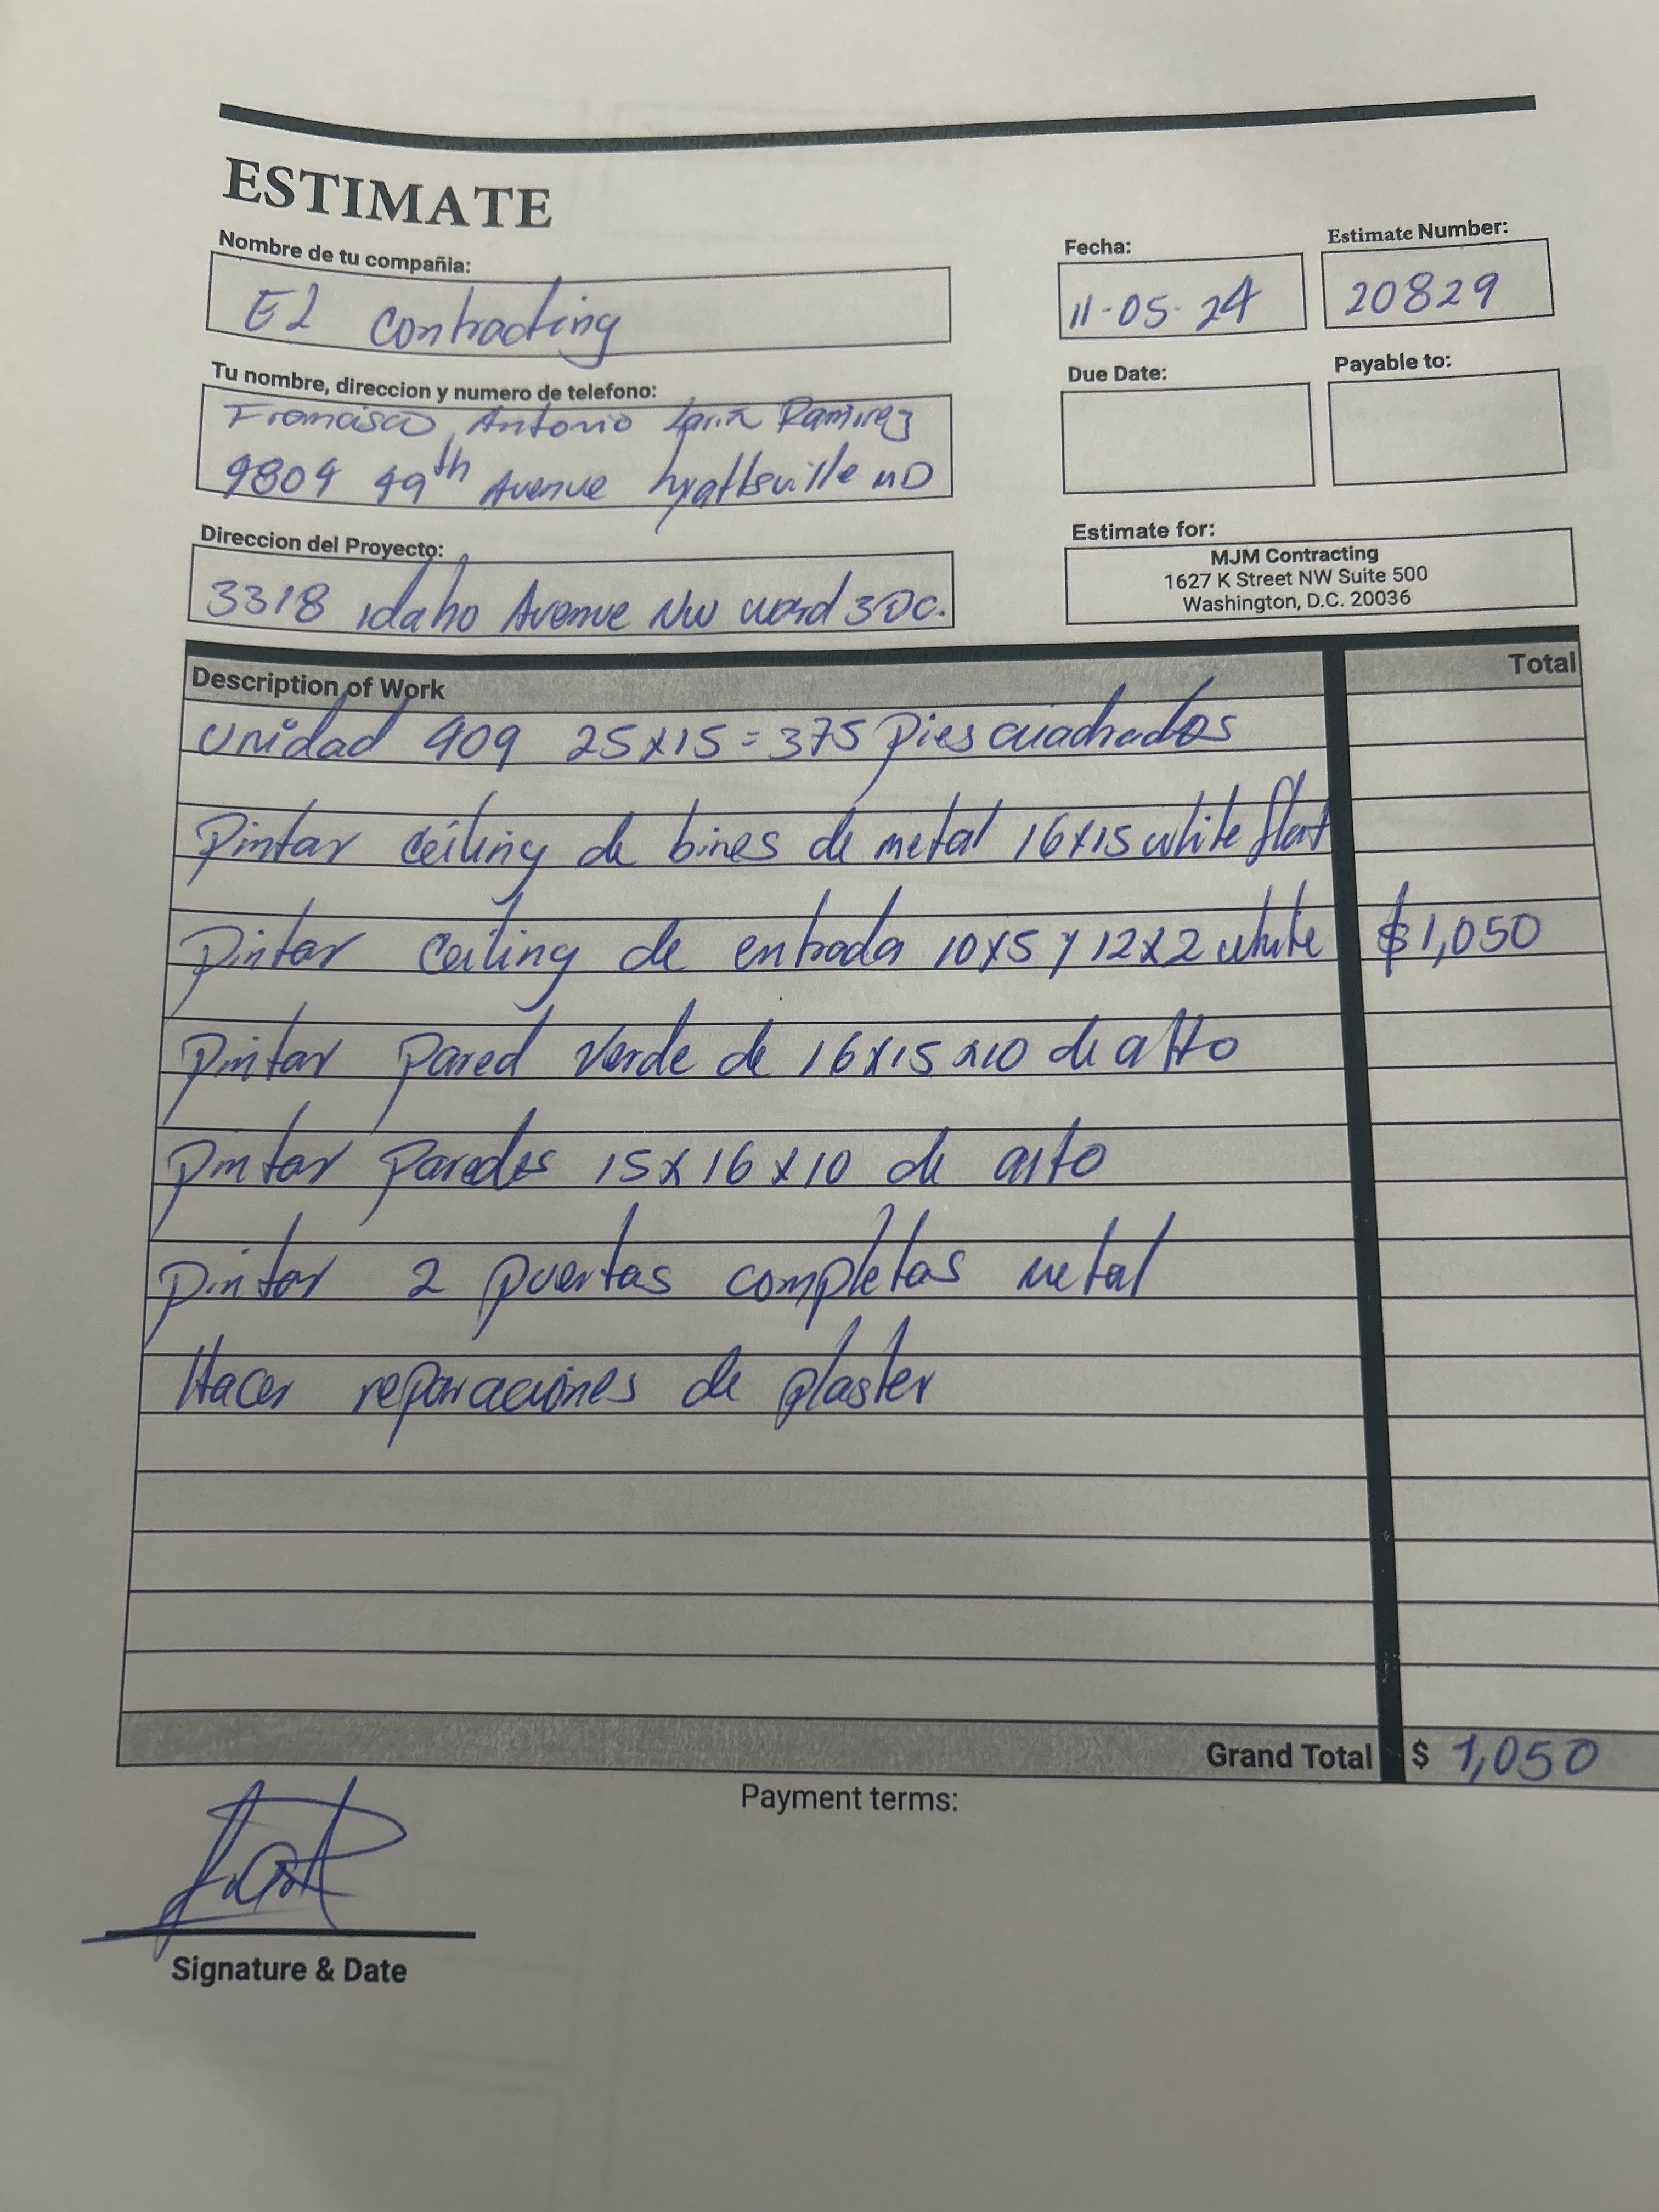 ESTIMATE
Nombre de tu compañia:
EL Contracting
Fecha:
11-05-24
Estimate Number:
20829
Tu nombre, direccion y numero de telefono:
Francisco Antonio Ramirez
9809 49th Avenue hyattsville MD
Due Date:
Payable to:
Direccion del Proyecto:
3318 idaho Avenue NW ward 3 DC.
Estimate for:
MJM Contracting
1627 K Street NW Suite 500
Washington, D.C. 20036
Description of Work
Total
Unidad 409 25x15=375 Pies cuadrados
Pintar ceiling de bines de metal 16x15 white flat
Pintar ceiling de entrada 10x5 y 12x2 white $1,050
Pintar pared verde de 16x15x10 de alto
Pintar paredes 15x16x10 de alto
Pintar 2 puertas completas metal
Hacer reparaciones de plaster
Grand Total $ 1,050
Payment terms:
Signature & Date